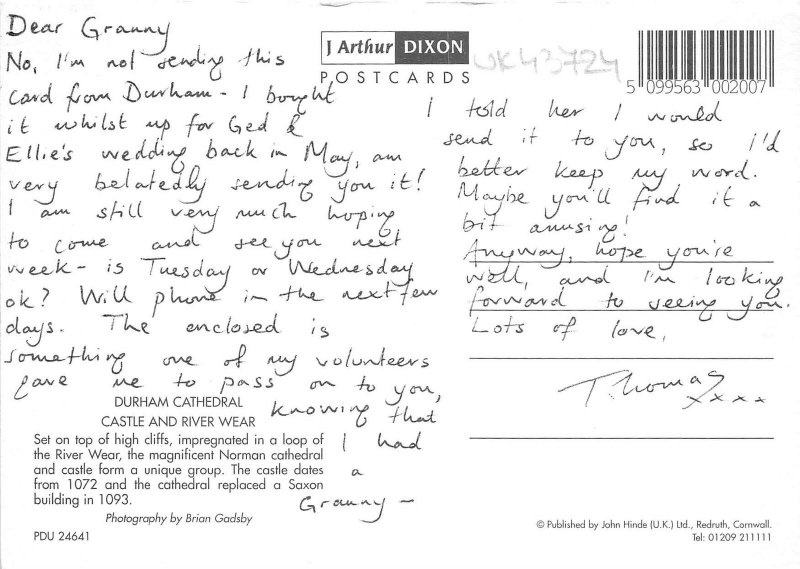 Dear Granny
No, I'm not sending this
card from Durham - I bought
it whilst up for Ged &
Ellie's wedding back in May, am
very belatedly sending you it!
I am still very much hoping
to come and see you next
week - is Tuesday or Wednesday
ok? Will phone in the next few
days. The enclosed is
something one of my volunteers
gave me to pass on to you,
knowing that
I had
a
Granny -
I told her I would
send it to you, so I'd
better keep my word.
Maybe you'll find it a
bit amusing!
Anyway, hope you're
well, and I'm looking
forward to seeing you.
Lots of love,
Thomas
xxxx
J Arthur DIXON
POSTCARDS
UK43724
5 099563 002007
DURHAM CATHEDRAL
CASTLE AND RIVER WEAR
Set on top of high cliffs, impregnated in a loop of
the River Wear, the magnificent Norman cathedral
and castle form a unique group. The castle dates
from 1072 and the cathedral replaced a Saxon
building in 1093.
Photography by Brian Gadsby
PDU 24641
© Published by John Hinde (U.K.) Ltd., Redruth, Cornwall.
Tel: 01209 211111